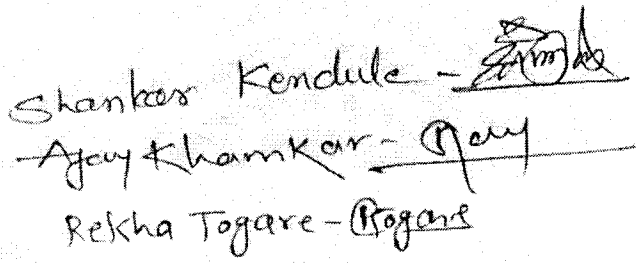 Shankar Kendule -
Ajay Khamkar - Ray
Rekha Togare - Rogare